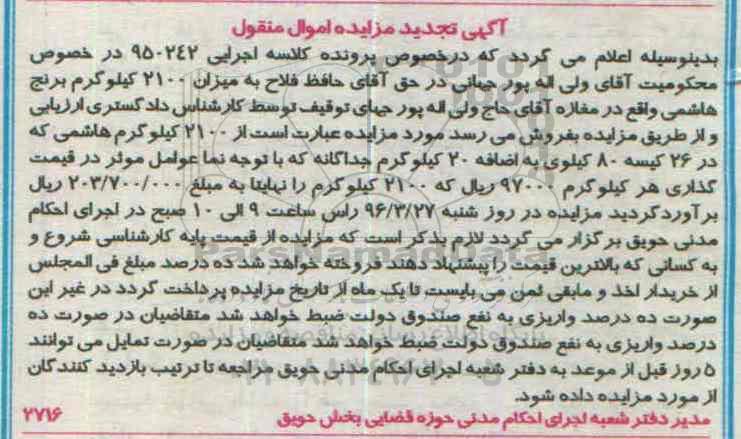 آگهی تجدید مزایده اموال منقول
بدینوسیله اعلام می گردد که درخصوص پرونده کلاسه اجرایی ۹۵۰۲۴۲ در خصوص
محکومیت آقای ولی اله پور جهانی در حق آقای حافظ فلاح به میزان ۲۱۰۰ کیلوگرم برنج
هاشمی واقع در مغازه آقای حاج ولی اله پور جهای توقیف توسط کارشناس دادگستری ارزیابی
و از طریق مزایده بفروش می رسد مورد مزایده عبارت است از ۲۱۰۰ کیلوگرم هاشمی که
در ۲۶ کیسه ۸۰ کیلوی به اضافه ۲۰ کیلوگرم جداگانه که با توجه نما عوامل موثر در قیمت
گذاری هر کیلوگرم ۹۷۰۰۰ ریال که ۲۱۰۰ کیلوگرم را نهایتا به مبلغ ۲۰۳/۷۰۰/۰۰۰ ریال
برآورد گردید مزایده در روز شنبه ۹۶/۳/۲۷ راس ساعت ۹ الی ۱۰ صبح در اجرای احکام
مدنی حویق برگزار می گردد لازم بذکر است که مزایده از قیمت پایه کارشناسی شروع و
به کسانی که بالاترین قیمت را پیشنهاد دهند فروخته خواهد شد ده درصد مبلغ فی المجلس
از خریدار اخذ و مابقی ثمن می بایست تا یک ماه از تاریخ مزایده پرداخت گردد در غیر این
صورت ده درصد واریزی به نفع صندوق دولت ضبط خواهد شد متقاضیان در صورت ده
درصد واریزی به نفع صندوق دولت ضبط خواهد شد متقاضیان در صورت تمایل می توانند
۵ روز قبل از موعد به دفتر شعبه اجرای احکام مدنی حویق مراجعه تا ترتیب بازدید کنندگان
از مورد مزایده داده شود.
مدیر دفتر شعبه اجرای احکام مدنی حوزه قضایی بخش حویق
۲۷۱۶
ParsNamadData